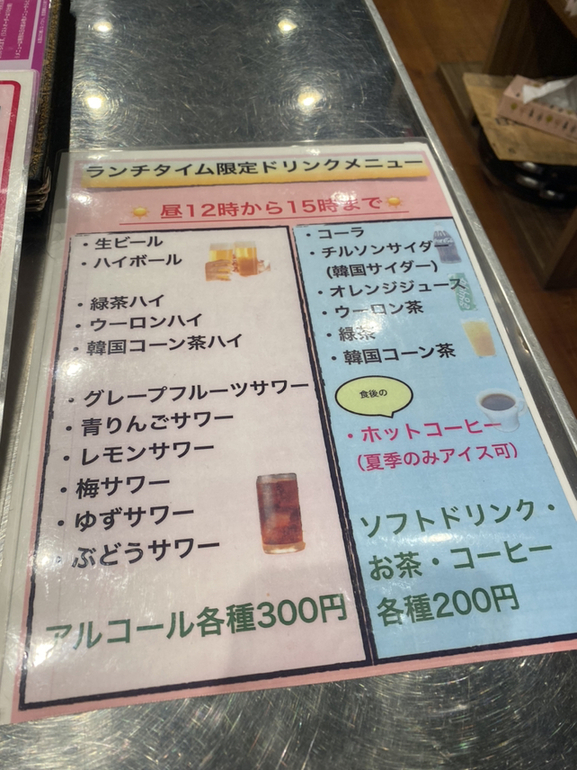 ランチタイム限定ドリンクメニュー
昼12時から15時まで
・生ビール
・ハイボール
・緑茶ハイ
・ウーロンハイ
・韓国コーン茶ハイ
・グレープフルーツサワー
・青りんごサワー
・レモンサワー
・梅サワー
・ゆずサワー
・ぶどうサワー
アルコール各種300円
・コーラ
・チルソンサイダー
(韓国サイダー)
・オレンジジュース
・ウーロン茶
・緑茶
・韓国コーン茶
食後の
・ホットコーヒー
（夏季のみアイス可）
ソフトドリンク・
お茶・コーヒー
各種200円